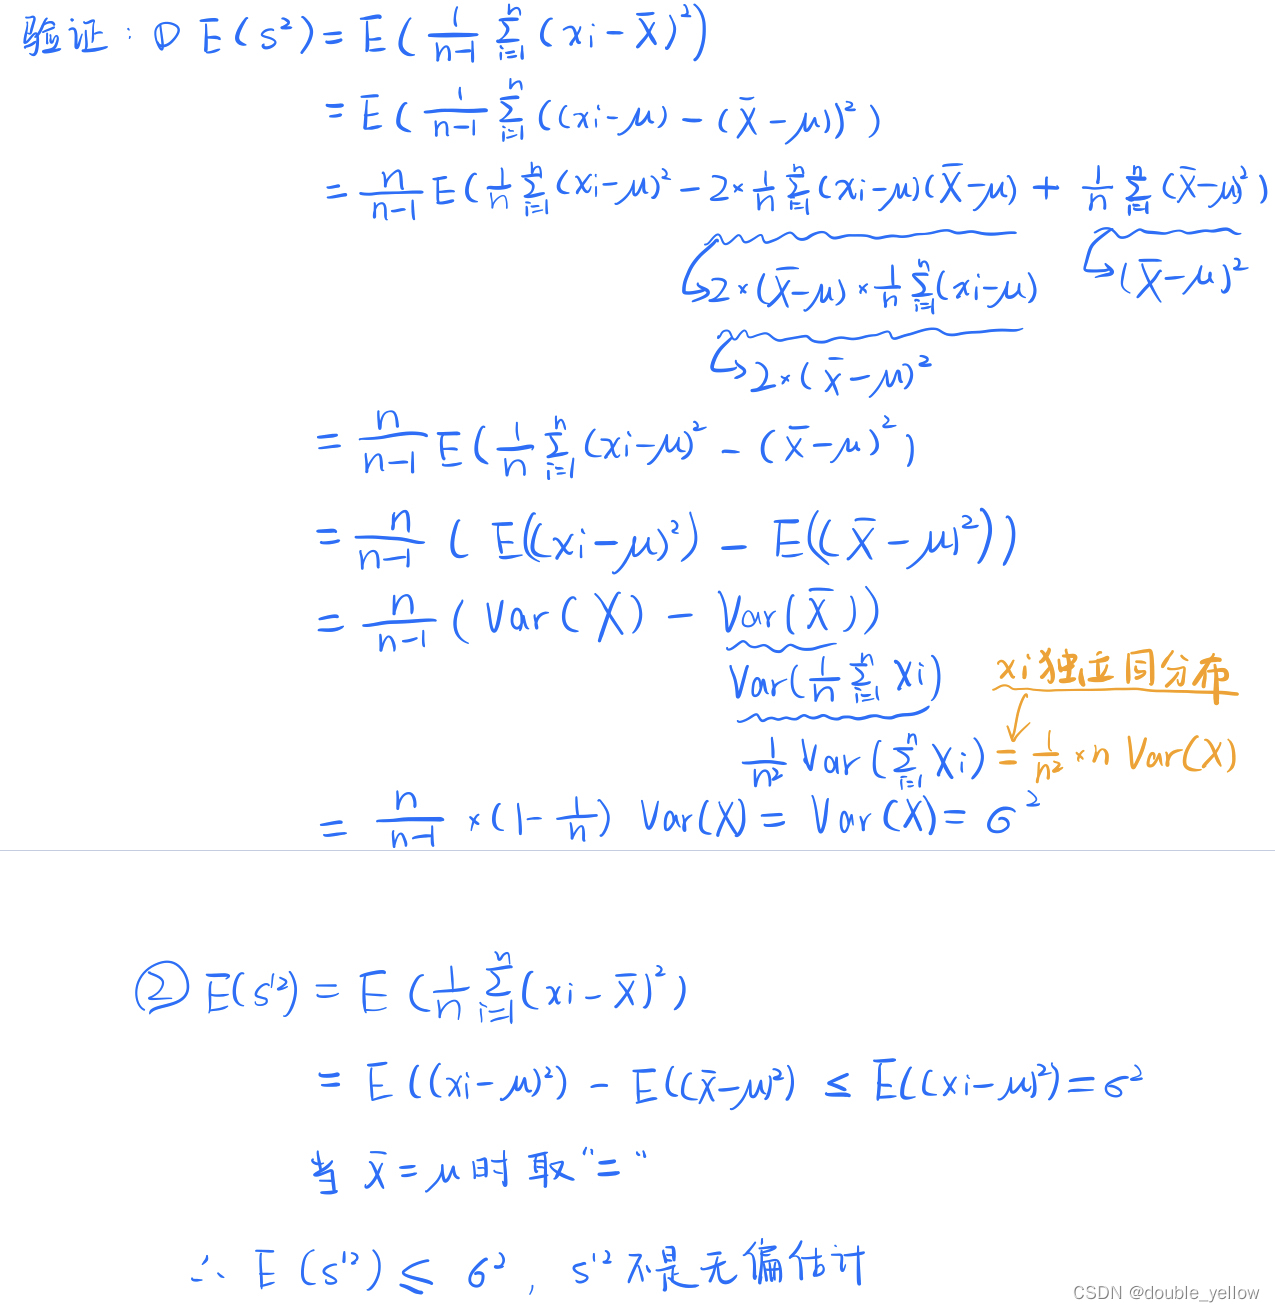 验证: ① E(s²) = E(1/(n-1) Σ_{i=1}^{n} (xi - X̄)²)
= E(1/(n-1) Σ_{i=1}^{n} ((xi-μ) - (X̄-μ))²)
= n/(n-1) E(1/n Σ_{i=1}^{n} (xi-μ)² - 2×1/n Σ_{i=1}^{n} (xi-μ)(X̄-μ) + 1/n Σ_{i=1}^{n} (X̄-μ)²)
2×(X̄-μ)×1/n Σ_{i=1}^{n} (xi-μ) (X̄-μ)²
2×(x̄-μ)²
= n/(n-1) E(1/n Σ_{i=1}^{n} (xi-μ)² - (x̄-μ)²)
= n/(n-1) (E((xi-μ)²) - E((X̄-μ)²))
= n/(n-1) (Var(X) - Var(X̄))
Var(1/n Σ_{i=1}^{n} Xi) xi独立同分布
1/n² Var(Σ_{i=1}^{n} Xi) = 1/n² × n Var(X)
= n/(n-1) × (1 - 1/n) Var(X) = Var(X) = σ²
② E(s'²) = E(1/n Σ_{i=1}^{n} (xi - X̄)²)
= E((xi-μ)²) - E((x̄-μ)²) ≤ E((xi-μ)²) = σ²
当 x̄ = μ时取"="
∴ E(s'²) ≤ σ², s'²不是无偏估计
CSDN @double_yellow